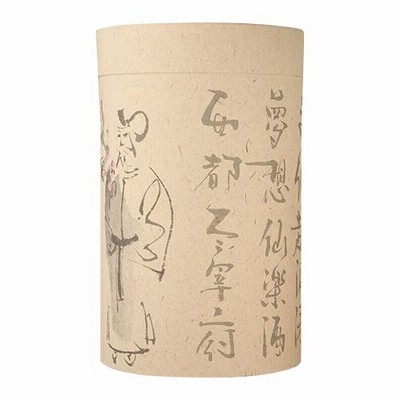 夢想仙樂酒
西都大宰府